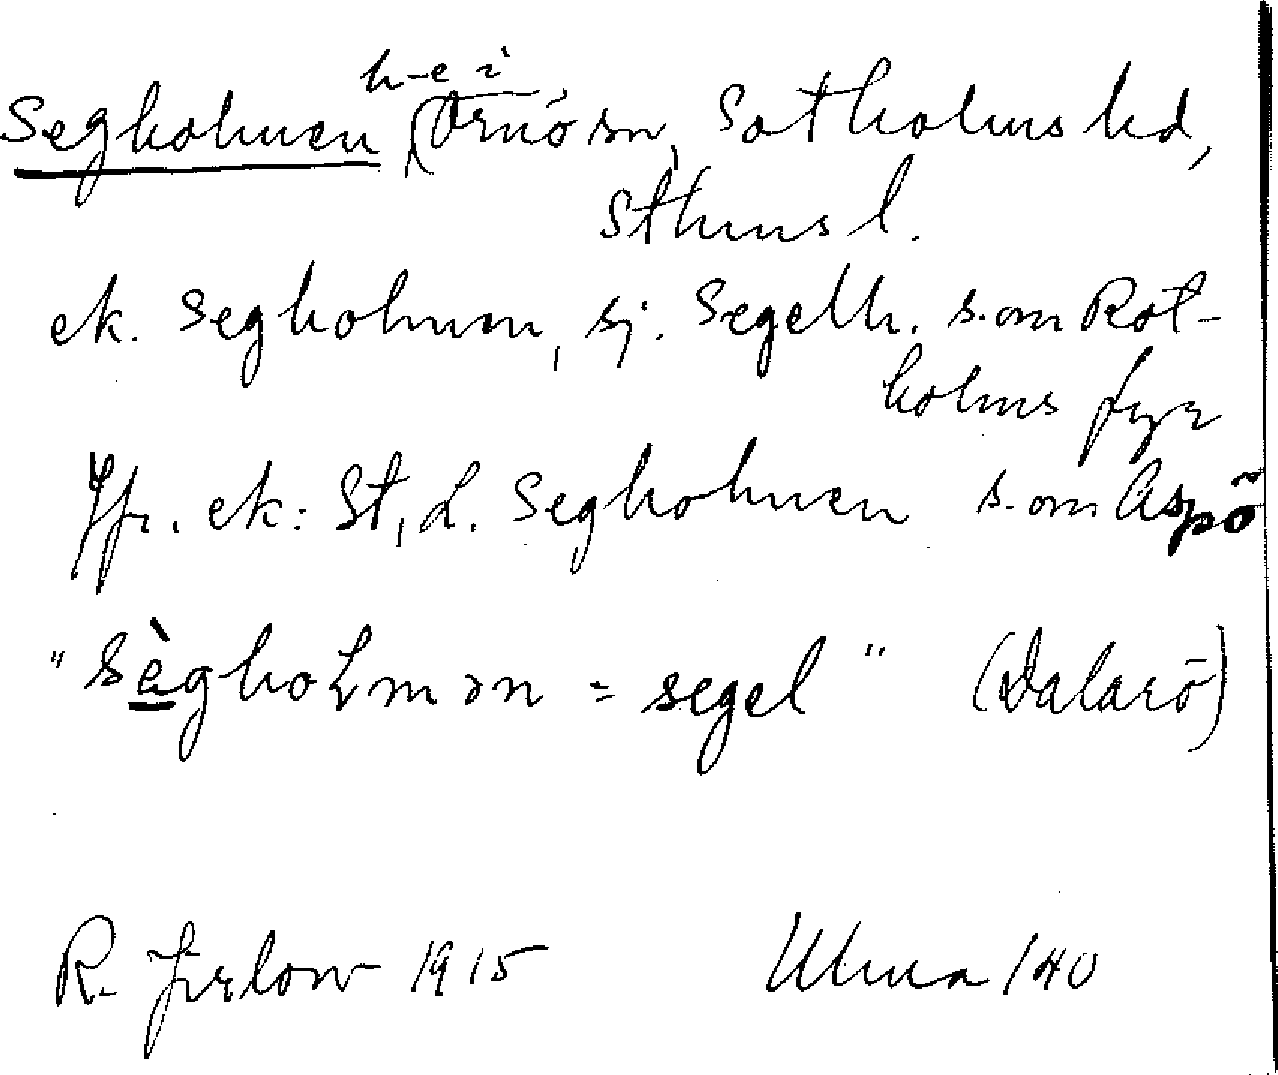 h-e i
Segholmen, Ornö sn, Sotholms hd,
Sthms l.
ek. Segholmen, sj. Segelh. s. om Rot-
holms fyr
Jfr. ek: St, L. Segholmen s. om Aspö
"Sèghołmən = segel" (Dalarö)
R. Jirlow 1915 Ulma 140